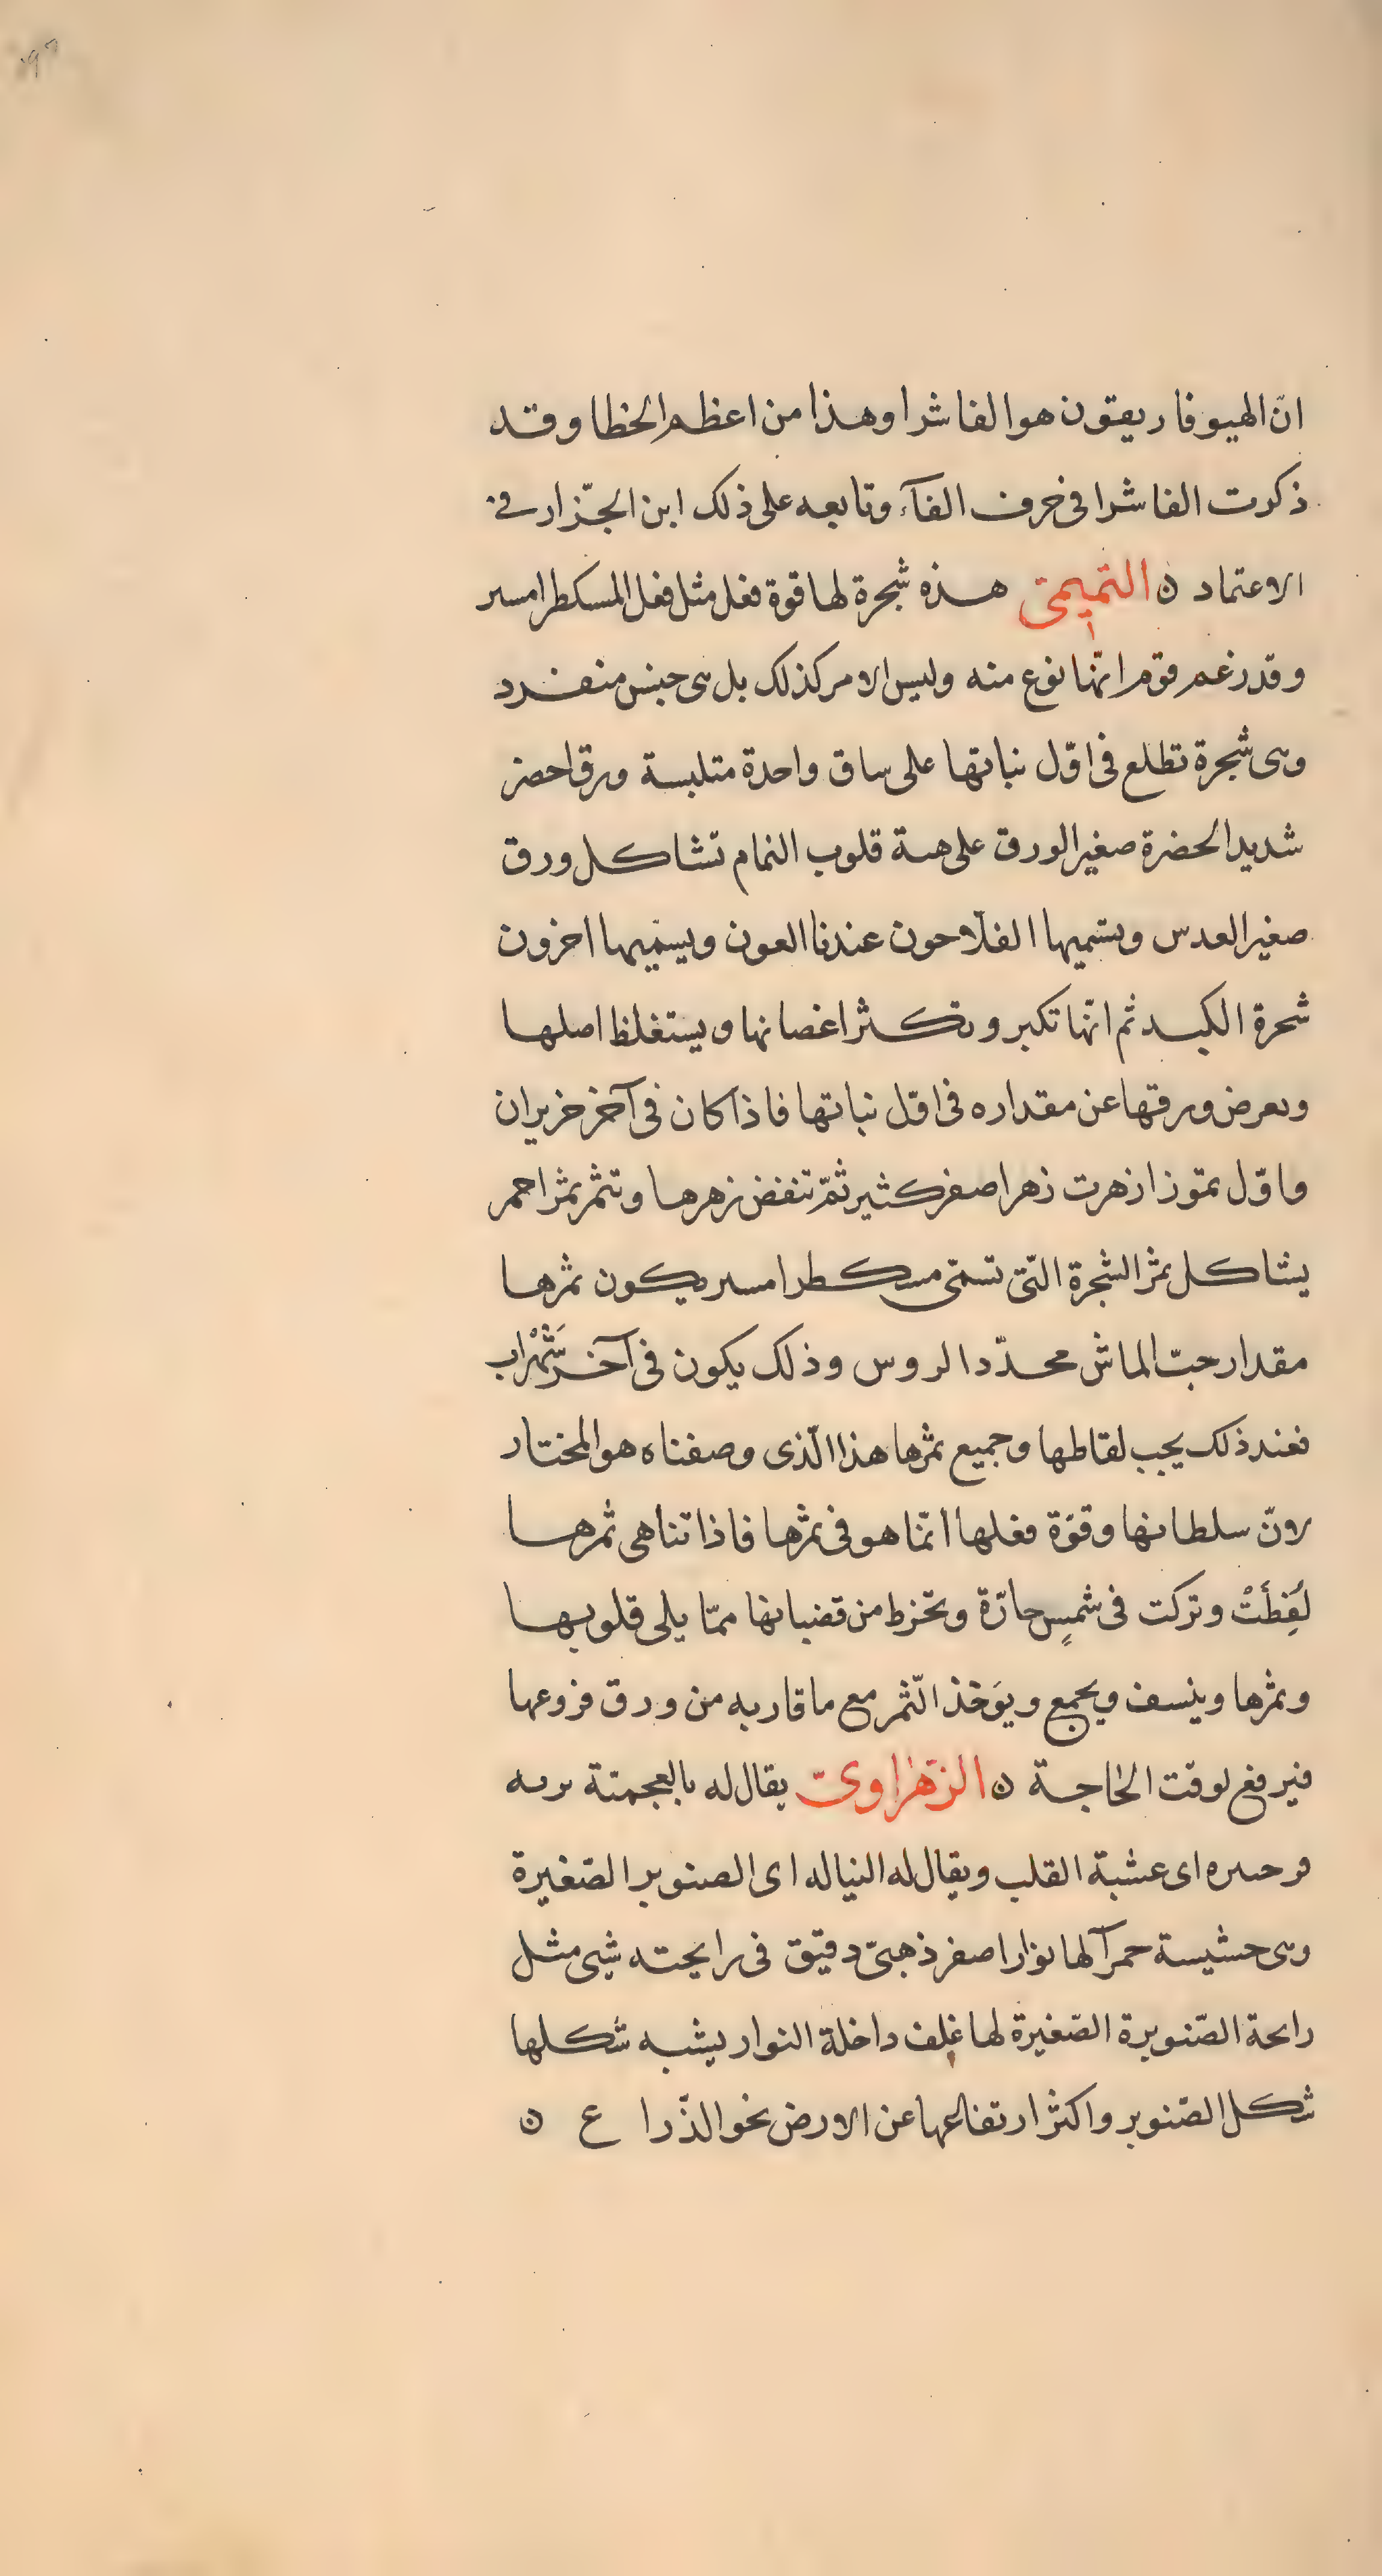 انّ الهيوفاريقون هو الفاشرا وهذا من اعظم الخطا وقد
ذكرت الفاشرا فى حرف الفآء وتابعه على ذلك ابن الجزّار فى
الاعتماد ن التميمىّ هذه شجرة لها قوة فعل مثل فعل المسكطرامسىر
وقد زعم قوم انّها نوع منه وليس الامر كذلك بل هى جنس منفرد
وهى شجرة تطلع فى اوّل نباتها على ساق واحدة متلبسة ورقا اخضر
شديد الخضرة صغير الورق على هىة قلوب النمام تشاكل ورق
صغير العدس ويسّميها الفلّاحون عندنا العون ويسمّيها اخرون
شجرة الكبد ثم انّها تكبر وتكثر اغصانها ويستغلظ اصلها
ويعرض ورقها عن مقداره فى اوّل نباتها فاذا كان فى آخر حزيران
واوّل تموز ازهرت زهرا اصفر كثير ثمّ تنفض زهرها وتثمر بثمر احمر
يشاكل ثمر الشجرة الّتى تسمّى مسكطرامسىر يكون ثمرها
مقدار حبّ الماش محدّد الروس وذلك يكون فى آخر شَهْر اب
فعند ذلك يجب لقاطها وجميع ثمرها هذا الّذى وصفناه هو المختار
لانّ سلطانها وقوّة فعلها انّما هو فى ثمرها فاذا تناهى ثمرها
لُقِطَتْ وتركت فى شمسٍ حارّة وتخرط من قضبانها ممّا يلى قلوبها
وثمرها وينسف ويجمع ويوَخذ الّثمر مع ما قاربه من ورق فروعها
فيرفع لوقت الحاجة ن الزّهْراوىّ يقال له بالعجميّة ىرىه
فرحىىره اى عشبة القلب ويقال له النياله اى الصنوبر الصّغيرة
وهى حشيسة حمرآ لها نوّار اصفر ذهبىّ دقيق فى رايحته شىء مثل
رائحة الصّنوبرة الصّغيرة لها غلف داخلة النوار يشبه شكلها
شكل الصّنوبر واكثر ارتفاعها عن الارض نحو الذّراع ن